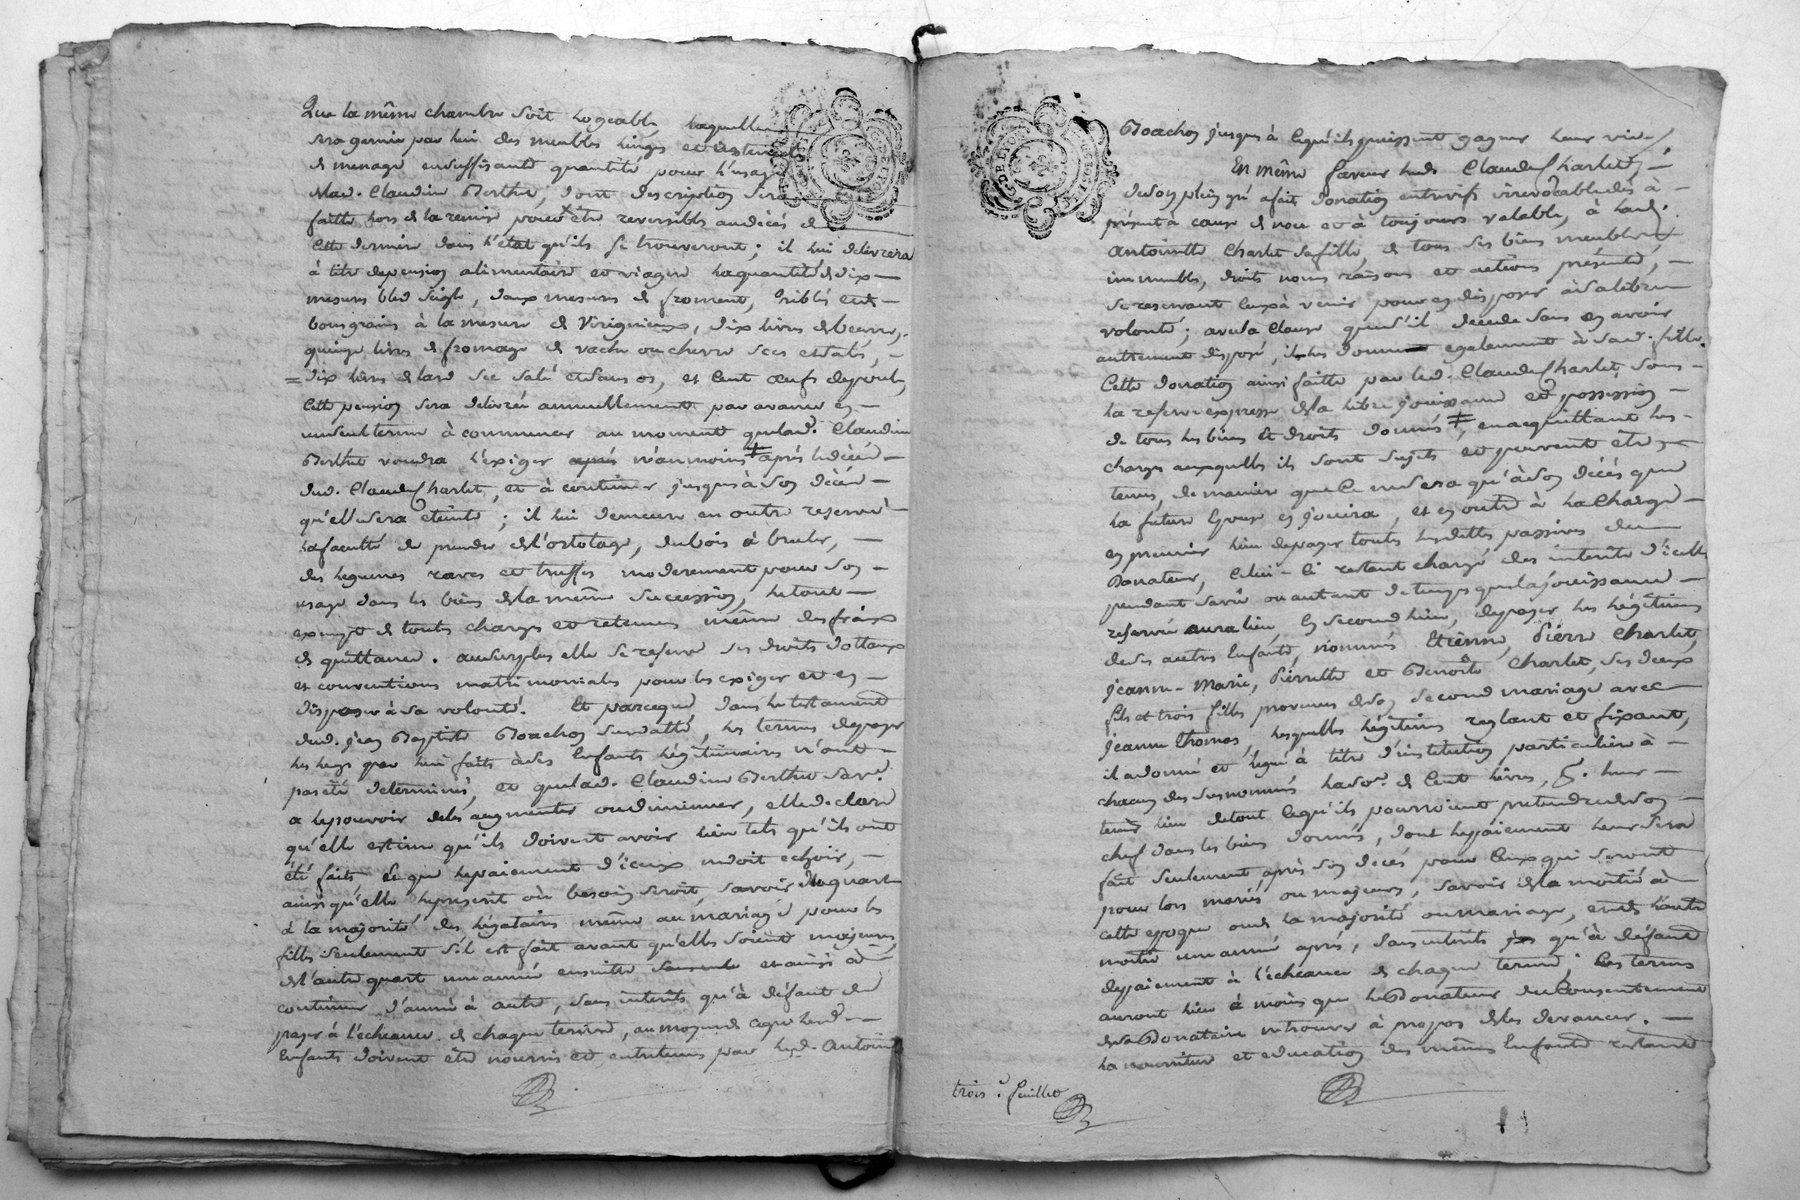 Que la même chambre soit logeable, laquelle
sera garnie par lui des meubles linges et ustenciles
de menage en suffisante quantité pour l'usage
de lad. Claudine Berthet, dont description sera
faitte lors de la remise pour être reversibles au décès de
Cette derniere dans l'état qu'ils se trouveront ; il lui delivrera
à titre de pension alimentaire et viagere la quantité de dix —
mesures bled seigle, deux mesures de froment, criblés et de —
bons grains à la mesure de Virignieux, dix livres de beurre,
quinze livres de fromage de vache ou chevre secs et salés, —
= dix livres de lard sec salé et sans os, et Cent œufs de poule,
Cette pension sera delivrée annuellement par avance en —
un seul terme à commencer au moment que lad. Claudine
Berthet voudra l'exiger après néanmoins après le décès —
dud. Claude Charlet, et à continuer jusques à son décès —
qu'elle sera éteinte ; il lui demeure en outre reservé —
la faculté de prendre de l'ortolage, du bois à bruler, —
des legumes raves et truffes moderement pour son —
usage dans les biens de la même succession, le tout —
exempt de toutes charges et retenues même des fraix
de quittance. Au surplus elle se reserve ses droits dottaux
et conventions matrimoniales pour les exiger et en —
disposer à sa volonté. Et parceque dans le testament
dud. jean Baptiste Boachon sus datté, les termes de payer
les legs par lui faits à ses Enfants légitimaires n'ont —
pas été determinés, et que lad. Claudine Berthet
a le pouvoir de les augmenter ou diminuer, elle déclare
qu'elle estime qu'ils doivent avoir lieu tels qu'ils ont
été faits et que le paiement d'iceux doit echoir, —
ainsi qu'elle le prescrit où besoin seroit, savoir un quart
à la majorité des légataires même au mariage pour les
filles seulement s'il est fait avant qu'elles soient majeures,
et l'autre quart une année ensuitte et ainsi à —
continuer d'année à autre, sans interêts qu'à défaut de
payer à l'écheance de chaque terme, au moyen de ce que lesd. —
Enfants doivent être nourris et entretenus par led. Antoine
Boachon jusques à ce qu'ils puissent gagner leur vie. /.
En même faveur led. Claude Charlet, —
de son plein gré a fait donation entrevifs irrevocable dès à —
présent à cause de noce et à toujours valable, à lad.
Antoinette Charlet sa fille, de tous ses biens meubles,
immeubles, droits noms raisons et actions présents, —
se reservant Ceux à venir pour en disposer à sa libre —
volonté ; avec la Clause que s'il decede sans en avoir
autrement disposé, il les donne egalement à sad. fille.
Cette donation ainsi faitte par led. Claude Charlet, sous —
la reserve expresse de la libre jouissance et possession —
de tous les biens et droits donnés ‡, en acquittant les —
charges auxquelles ils sont sujets et peuvent être —
tenus, de maniere que Ce ne sera qu'à son décès que
la future Epouse en jouira, et en outre à la Charge —
en premier lieu de payer toutes les dettes passives du —
Donateur, Celui-Ci restant chargé des interêts d'icelles
pendant sa vie ou autant de temps que la jouissance —
reservée aura lieu, En second lieu, de payer les légitimes
de ses autres Enfants, nommés Etienne, Pierre Charlet,
Jeanne-Marie, Pierrette et Benoîte Charlet, ses deux
fils et trois filles provenus de son second mariage avec
Jeanne Thomas, lesquelles légitimes reglant et fixant,
il a donné et legué à titre d'institution particuliere à —
chacun des susnommés la so.e de Cent livres, p. leur —
tenir lieu de tout Ce qu'ils pourroient pretendre de son —
chef dans les biens donnés, dont le paiement leur sera
fait seulement après son decès, pour Ceux qui seront
pour lors mariés ou majeurs, savoir de la moitié à —
cette epoque ou de la majorité ou mariage, et de l'autre
moitié une année après, sans interêts qu'à défaut
de paiement à l'écheance de chaque terme ; Ces termes
auront lieu à moins que le Donateur du Consentement
de la Donataire ne trouve à propos de les devancer. —
La nourriture et education des mêmes Enfants restant
trois.e feuillet